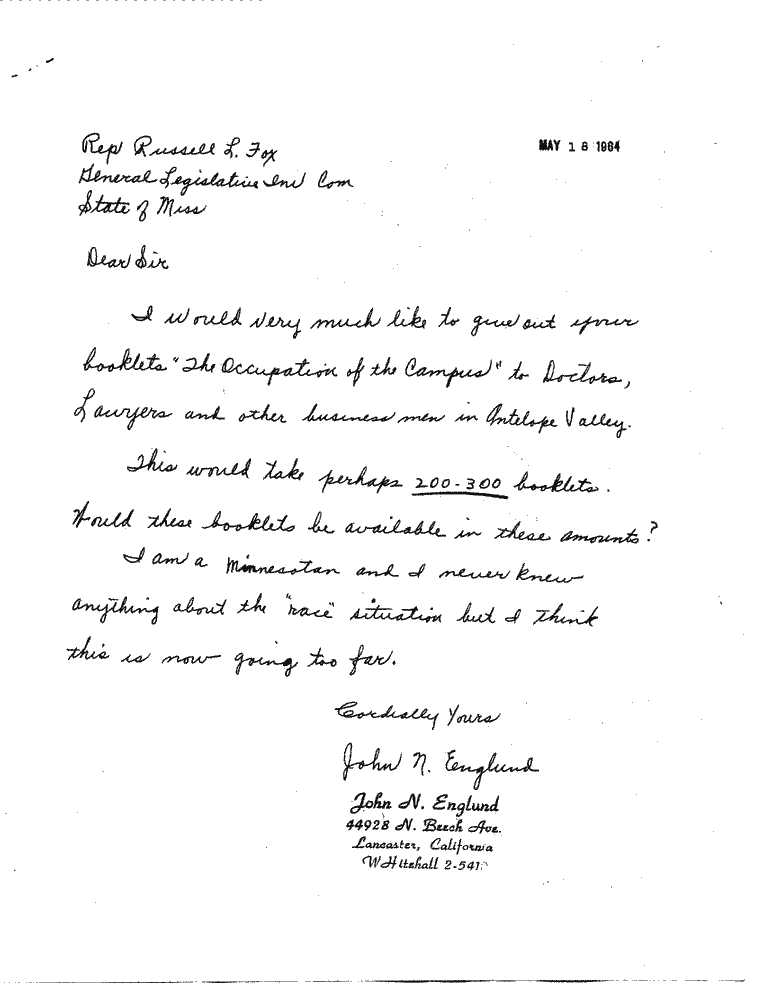 Rep Russell L. Fox
MAY 18 1964
General Legislative Inv Com
State of Miss
Dear Sir
I would very much like to give out your
booklets "The Occupation of the Campus" to Doctors,
Lawyers and other business men in Antelope Valley.
This would take perhaps 200-300 booklets.
Would these booklets be available in these amounts?
I am a Minnesotan and I never knew
anything about the "race" situation but I think
this is now going too far.
Cordially Yours
John N. Englund
John N. Englund
44928 N. Beech Ave.
Lancaster, California
WHitehall